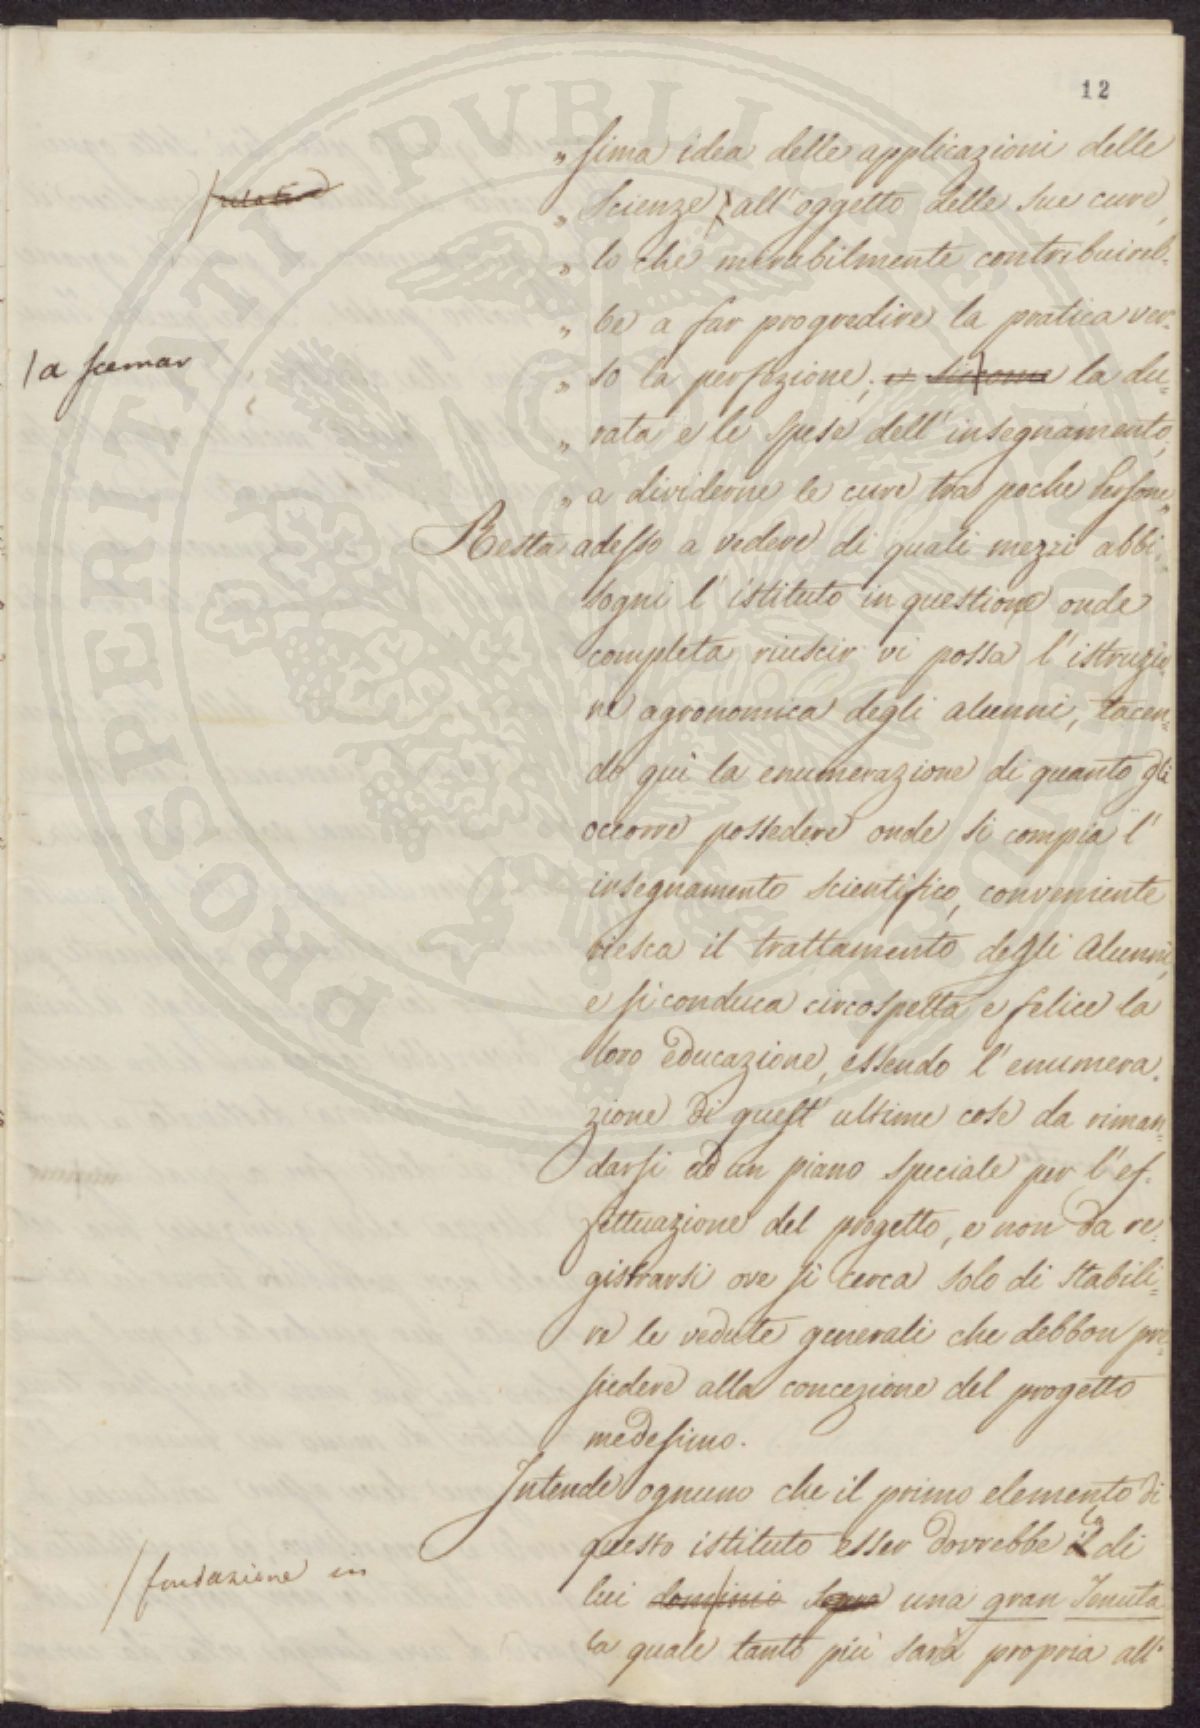 12
„ sima idea delle applicazioni delle
/relative
„ Scienze / all' oggetto delle sue cure,
„ lo che mirabilmente contribuireb-
„ be a far progredire la pratica ver-
/a scemar
„ so la perfezione; e siccome la du-
„ rata e le spese dell' insegnamento,
„ a dividerne le cure tra poche Persone„
Resta adesso a vedere di quali mezzi abbi-
sogni l' istituto in questione onde
completa riuscir vi possa l' istruzio-
ne agronomica degli alunni, tacen-
do quì la enumerazione di quanto gli
occorre possedere onde si compia l'
insegnamento scientifico, conveniente
riesca il trattamento degli Alunni,
e si conduca circospetta e felice la
loro educazione, essendo l' enumera-
zione di quest' ultime cose da riman-
darsi ad un piano speciale per l' ef-
fettuazione del progetto, e non da re-
gistrarsi ove si cerca solo di stabili-
re le vedute generali che debbon pre-
siedere alla concezione del progetto
medesimo.
Intende ognuno che il primo elemento di
questo istituto esser dovrebbe il la di
/fondazione in
lui dominio sopra una gran Tenuta
la quale tanto più sarà propria all'
PROSPERITATI PUBLICAE